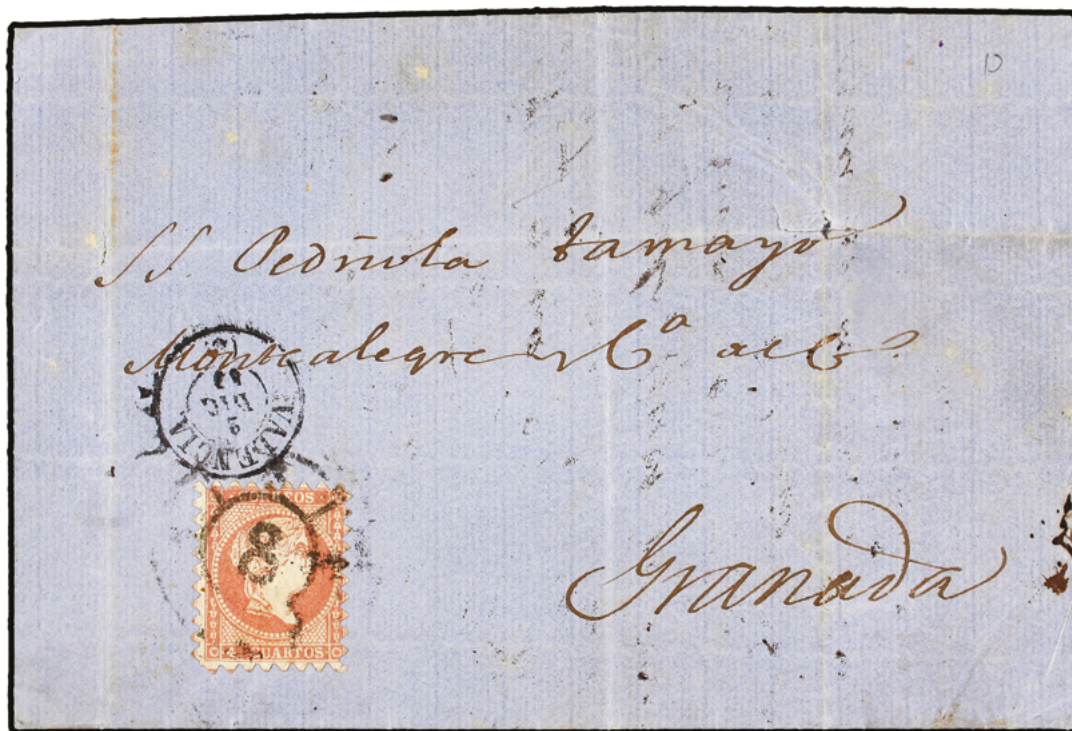 SS. Pedriñola Tamayo
Montealegre y Cª de C.º
VALENCIA
9
DIC
CORREOS
4 CUARTOS
Granada